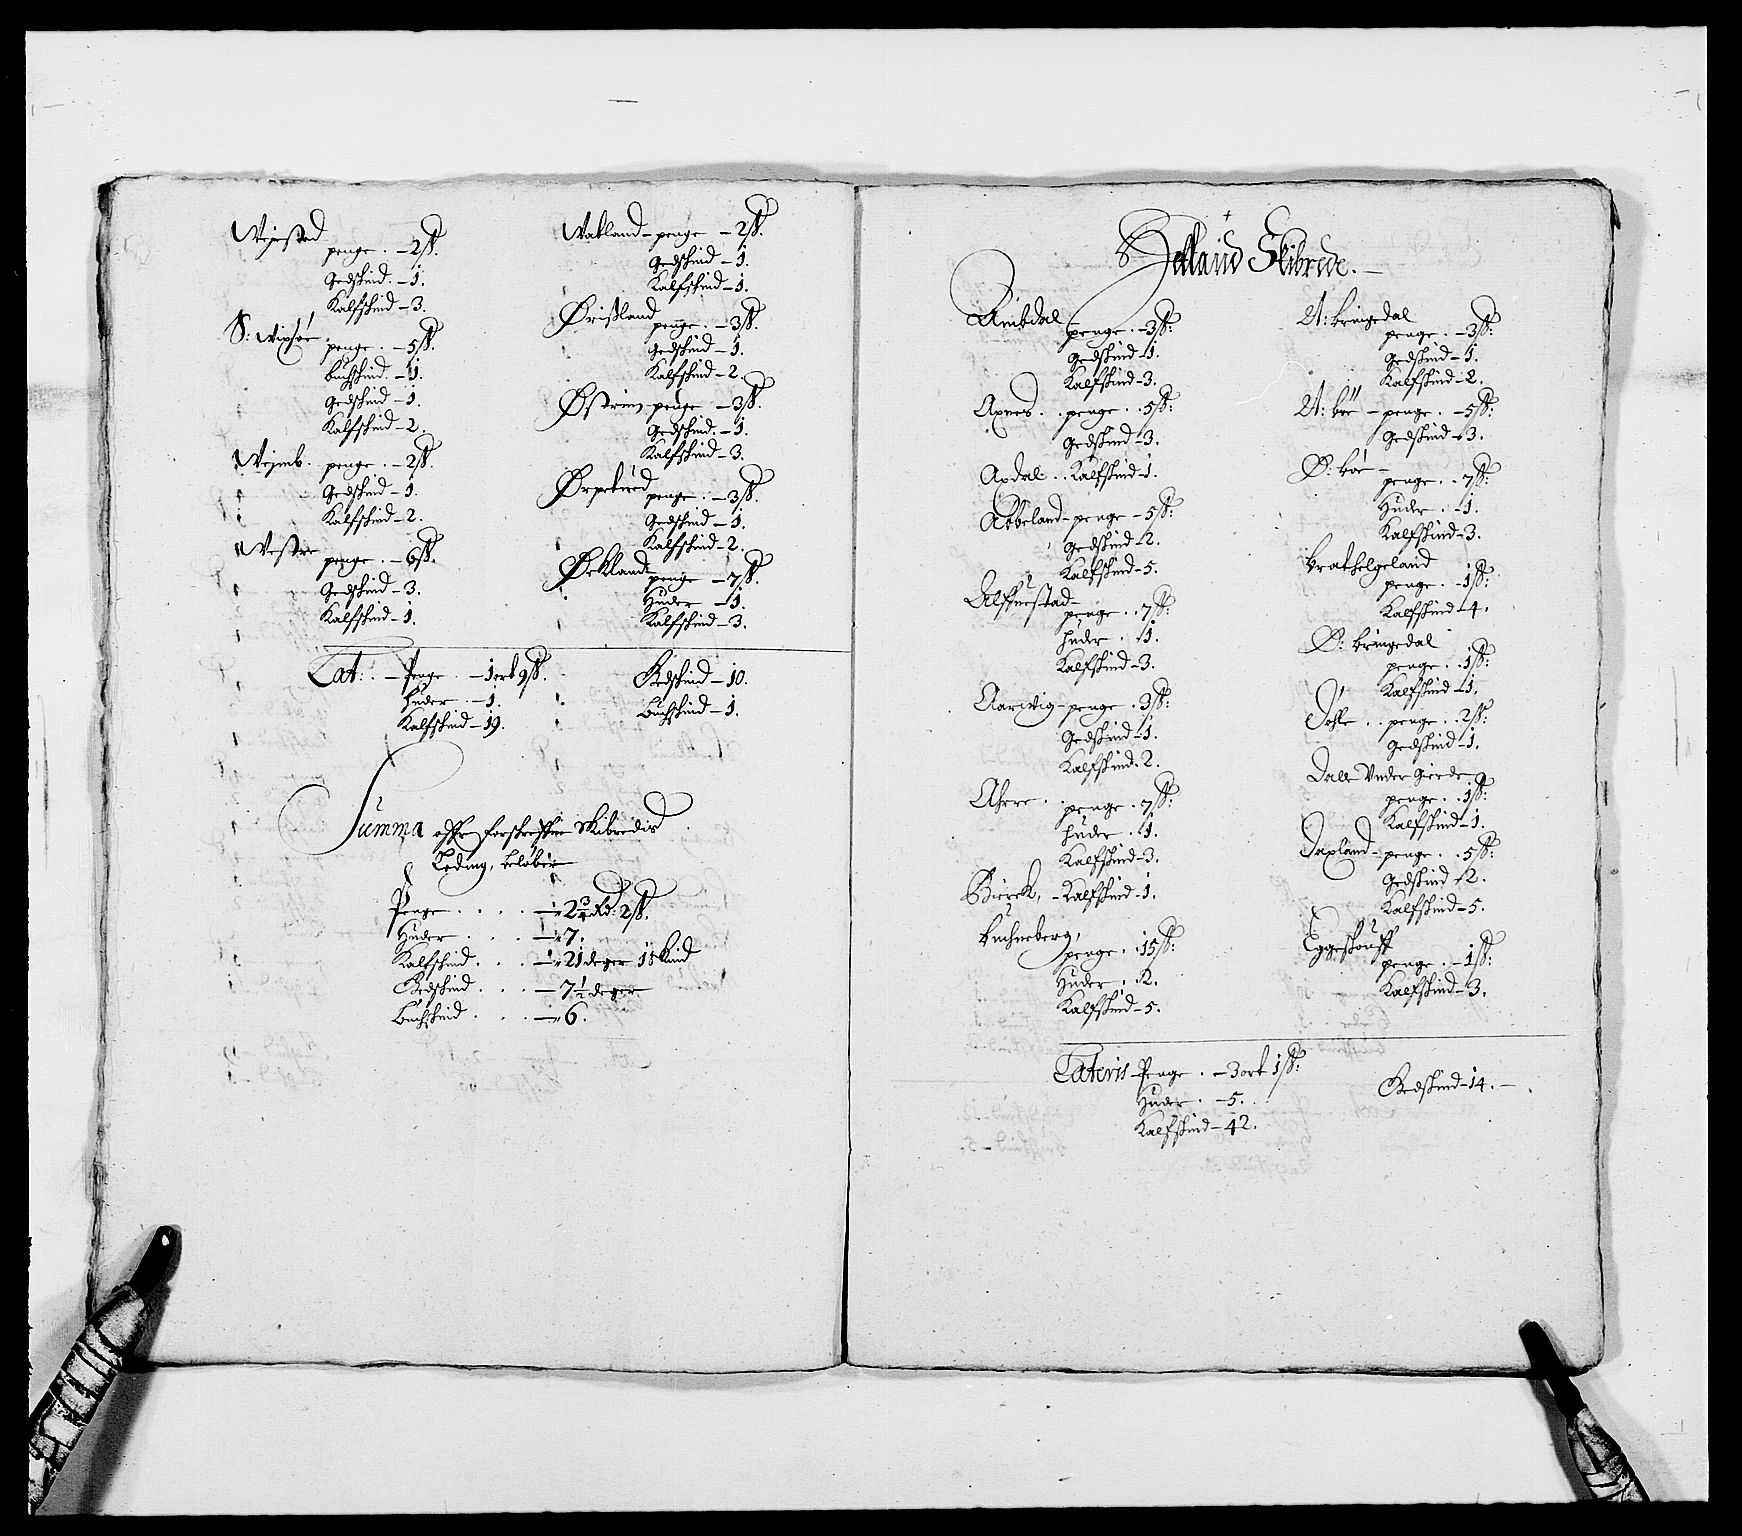 Wiestad
penge . – 2 ß.
Gedskind – 1.
Kalfskind – 3.
S: Wixsøe
penge . – 5 ß.
Buchskind – 1.
Gedskind – 1.
Kalfskind – 2.
penge . – 2 ß.
Gedskind – 1.
Kalfskind – 2.
Westre
penge . – 6 ß.
Gedskind – 3.
Kalfskind – 1.
Watland – penge – 2 ß.
Gedskind – 1.
Kalfskind – 1.
Ørisland
penge . – 3 ß.
Gedskind – 1.
Kalfskind – 2.
Østrim penge – 3 ß.
Gedskind . – 1.
Kalfskind – 3.
penge . – 3 ß.
Gedskind – 1.
Kalfskind – 2.
Ørkland
penge – 7 ß.
Huder – 1.
Kalfskind – 3.
Lat: . – Penge . – 1 ort 9 ß.
Huder – 1.
Kalfskind – 19.
Gedskind – 10.
Buchskind – 1.
Summa Skibredis
Leding, beløber
Penge . . . . – 2 3/4 Rd: 2 ß.
Huder . . . – 7.
Kalfskind . . . – 21 deger 1 skind
Gedskind . . . – 7 1/2 deger
Buchskind . . . – 6.
Halland Skibrede. –
Ambdal
penge . – 3 ß:
Gedskind – 1.
Kalfskind – 3.
Axnes . . penge . . 5 ß:
Gedskind – 3.
Axdal . . Kalfskind – 1.
Abbeland – penge – 5 ß:
Gedskind – 2.
Kalfskind – 5.
Alffuestad –
penge . . 7 ß:
Huder . . 1.
Kalfskind – 3.
Aarwig – penge . 3 ß:
Gedskind – 1.
Kalfskind . 2.
Ahre . . penge . 7 ß:
Huder . . 1.
Kalfskind – 3.
Bierck, – Kalfskind – 1.
Buchneberg,
penge . . 15 ß:
Huder . . 2.
Kalfskind – 5.
A: bringedal
penge . – 3 ß:
Gedskind – 1.
Kalfskind – 2.
A: bøe – penge . – 5 ß:
Gedskind – 3.
Ø: bøe –
penge . . 7 ß:
Huder . – 1.
Kalfskind – 3.
Brathelgeland
penge . – 1 ß:
Kalfskind – 4.
Ø: bringedal
penge . . 1 ß:
Kalfskind – 1.
penge . . 2 ß:
Gedskind – 1.
Dale Under Gierde
penge . . 1 ß:
Kalfskind – 1.
Daxland – penge . . 5 ß:
Gedskind – 2.
Kalfskind – 5.
Eggeskouff
penge . – 1 ß:
Kalfskind – 3.
Lateris – Penge . – 3 ort 1 ß:
Huder . – 5.
Kalfskind – 42.
Gedskind – 14. –